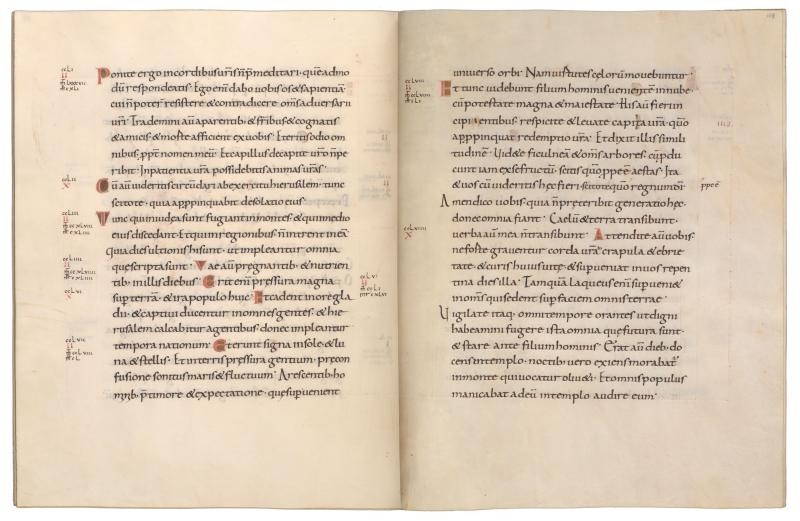 Ponite ergo incordibus uris n pmeditari · queadmo
du respondeatis · Ego eni dabo uobis os & sapientia
cui n poter resistere & contradicere oms aduersarii
uri · Trademini au aparentib; & frib; & cognatis
& amicis · & morte afficient ex uobis · Et eritis odio om
nibus ppt nomen meu · Et capillus decapite uro n pe
ribit · Inpatientia ura possidebitis animas uras ·
Cu au uideritis circudari abexercitu hierusalem · tunc
scitote · quia appinquabit desolatio eius ·
Tunc qui iniudea sunt fugiant inmontes · & qui inmedio
eius discedant · Et qui inregionibus n intrent in ea
quia dies ultionis hi sunt · ut impleantur omnia
que scripta sunt · Vae au pregnantib; & nutrien
tib; inillis dieb; · Erit eni pressura magna
sup terra · & ira populo huic · Et cadent inore gla
dii · & captiui ducentur inomnes gentes · & hie
rusalem calcabitur agentibus · donec impleantur
tempora nationum · Et erunt signa insole & lu
na & stellis · Et interris pressura gentium · precon
fusione sonitus maris & fluctuum · Arescentib; ho
minib; ptimore & expectatione · que supuenient
uniuerso orbi · Nam uirtutes celoru mouebuntur ·
Et tunc uidebunt filium hominis uenientem innube
cu potestate magna & maiestate · His au fieri in
cipientibus · respicite & leuate capita ura · quo
appinquat redemptio ura · Et dixit illis simili
tudine · Uidete ficulnea & oms arbores · cu pdu
cunt iam ex se fructu · scitis quo ppe e aestas · Ita
& uos cu uideritis hec fieri · scitote quo regnum di
ppe e
Amen dico uobis · quia n preteribit generatio hec ·
donec omnia fiant · Caelu & terra transibunt ·
uerba au mea n transibunt · Attendite au uobis ·
ne forte grauentur corda ura crapula & ebrie
tate · & curis huius uite · & supueniat inuos repen
tina dies illa · Tamqua laqueus eni supueniet
inoms qui sedent sup faciem omnis terrae ·
Uigilate itaq; omni tempore orantes · ut digni
habeamini fugere ista omnia que futura sunt ·
& stare ante filium hominis · Erat au dieb; do
cens intemplo · noctib; uero exiens morabat
inmonte qui uocatur oliueti · Et omnis populus
manicabat ad eu intemplo audire eum ·